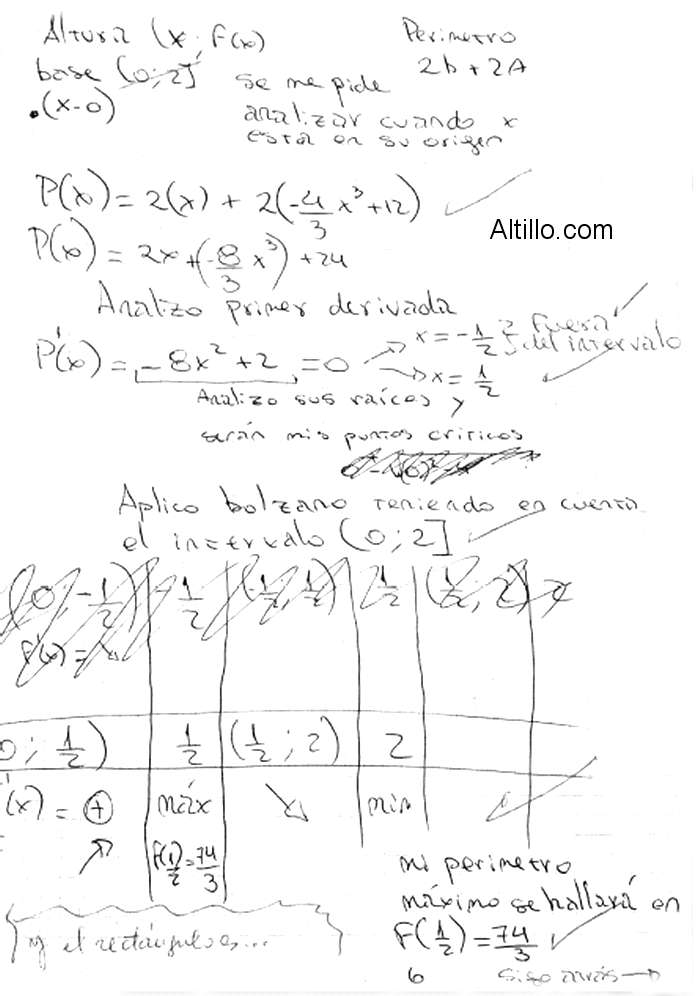 Altura (x; f(x)
Perimetro
base (0;2]
2b + 2A
.(x-0)
se me pide
analizar cuando x
esta en su origen
P(x) = 2(x) + 2(-4/3 x³+12)
P(x) = 2x+(-8/3 x³) + 24
Altillo.com
Analizo primer derivada
P'(x) = -8x² + 2 = 0
x = -1/2 } fuera del intervalo
x = 1/2
Analizo sus raíces y
serán mis puntos criticos
Aplico bolzano teniendo en cuenta
el intervalo (0;2]
(0, -1/2) | -1/2 | (-1/2, 1/2) | 1/2 | (1/2, 2)
f'(x) =
0; 1/2) | 1/2 | (1/2; 2) | 2
'(x) = + | máx | ↘ | min
↗ | f(1/2) = 74/3
mi perimetro
máximo se hallará en
f(1/2) = 74/3
y el rectángulo es...
6
sigo atrás →